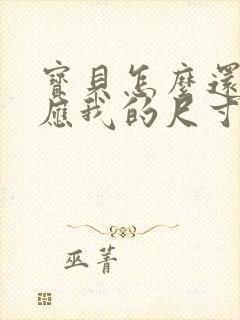 寶貝怎麼還
應我的尺寸
巫菁